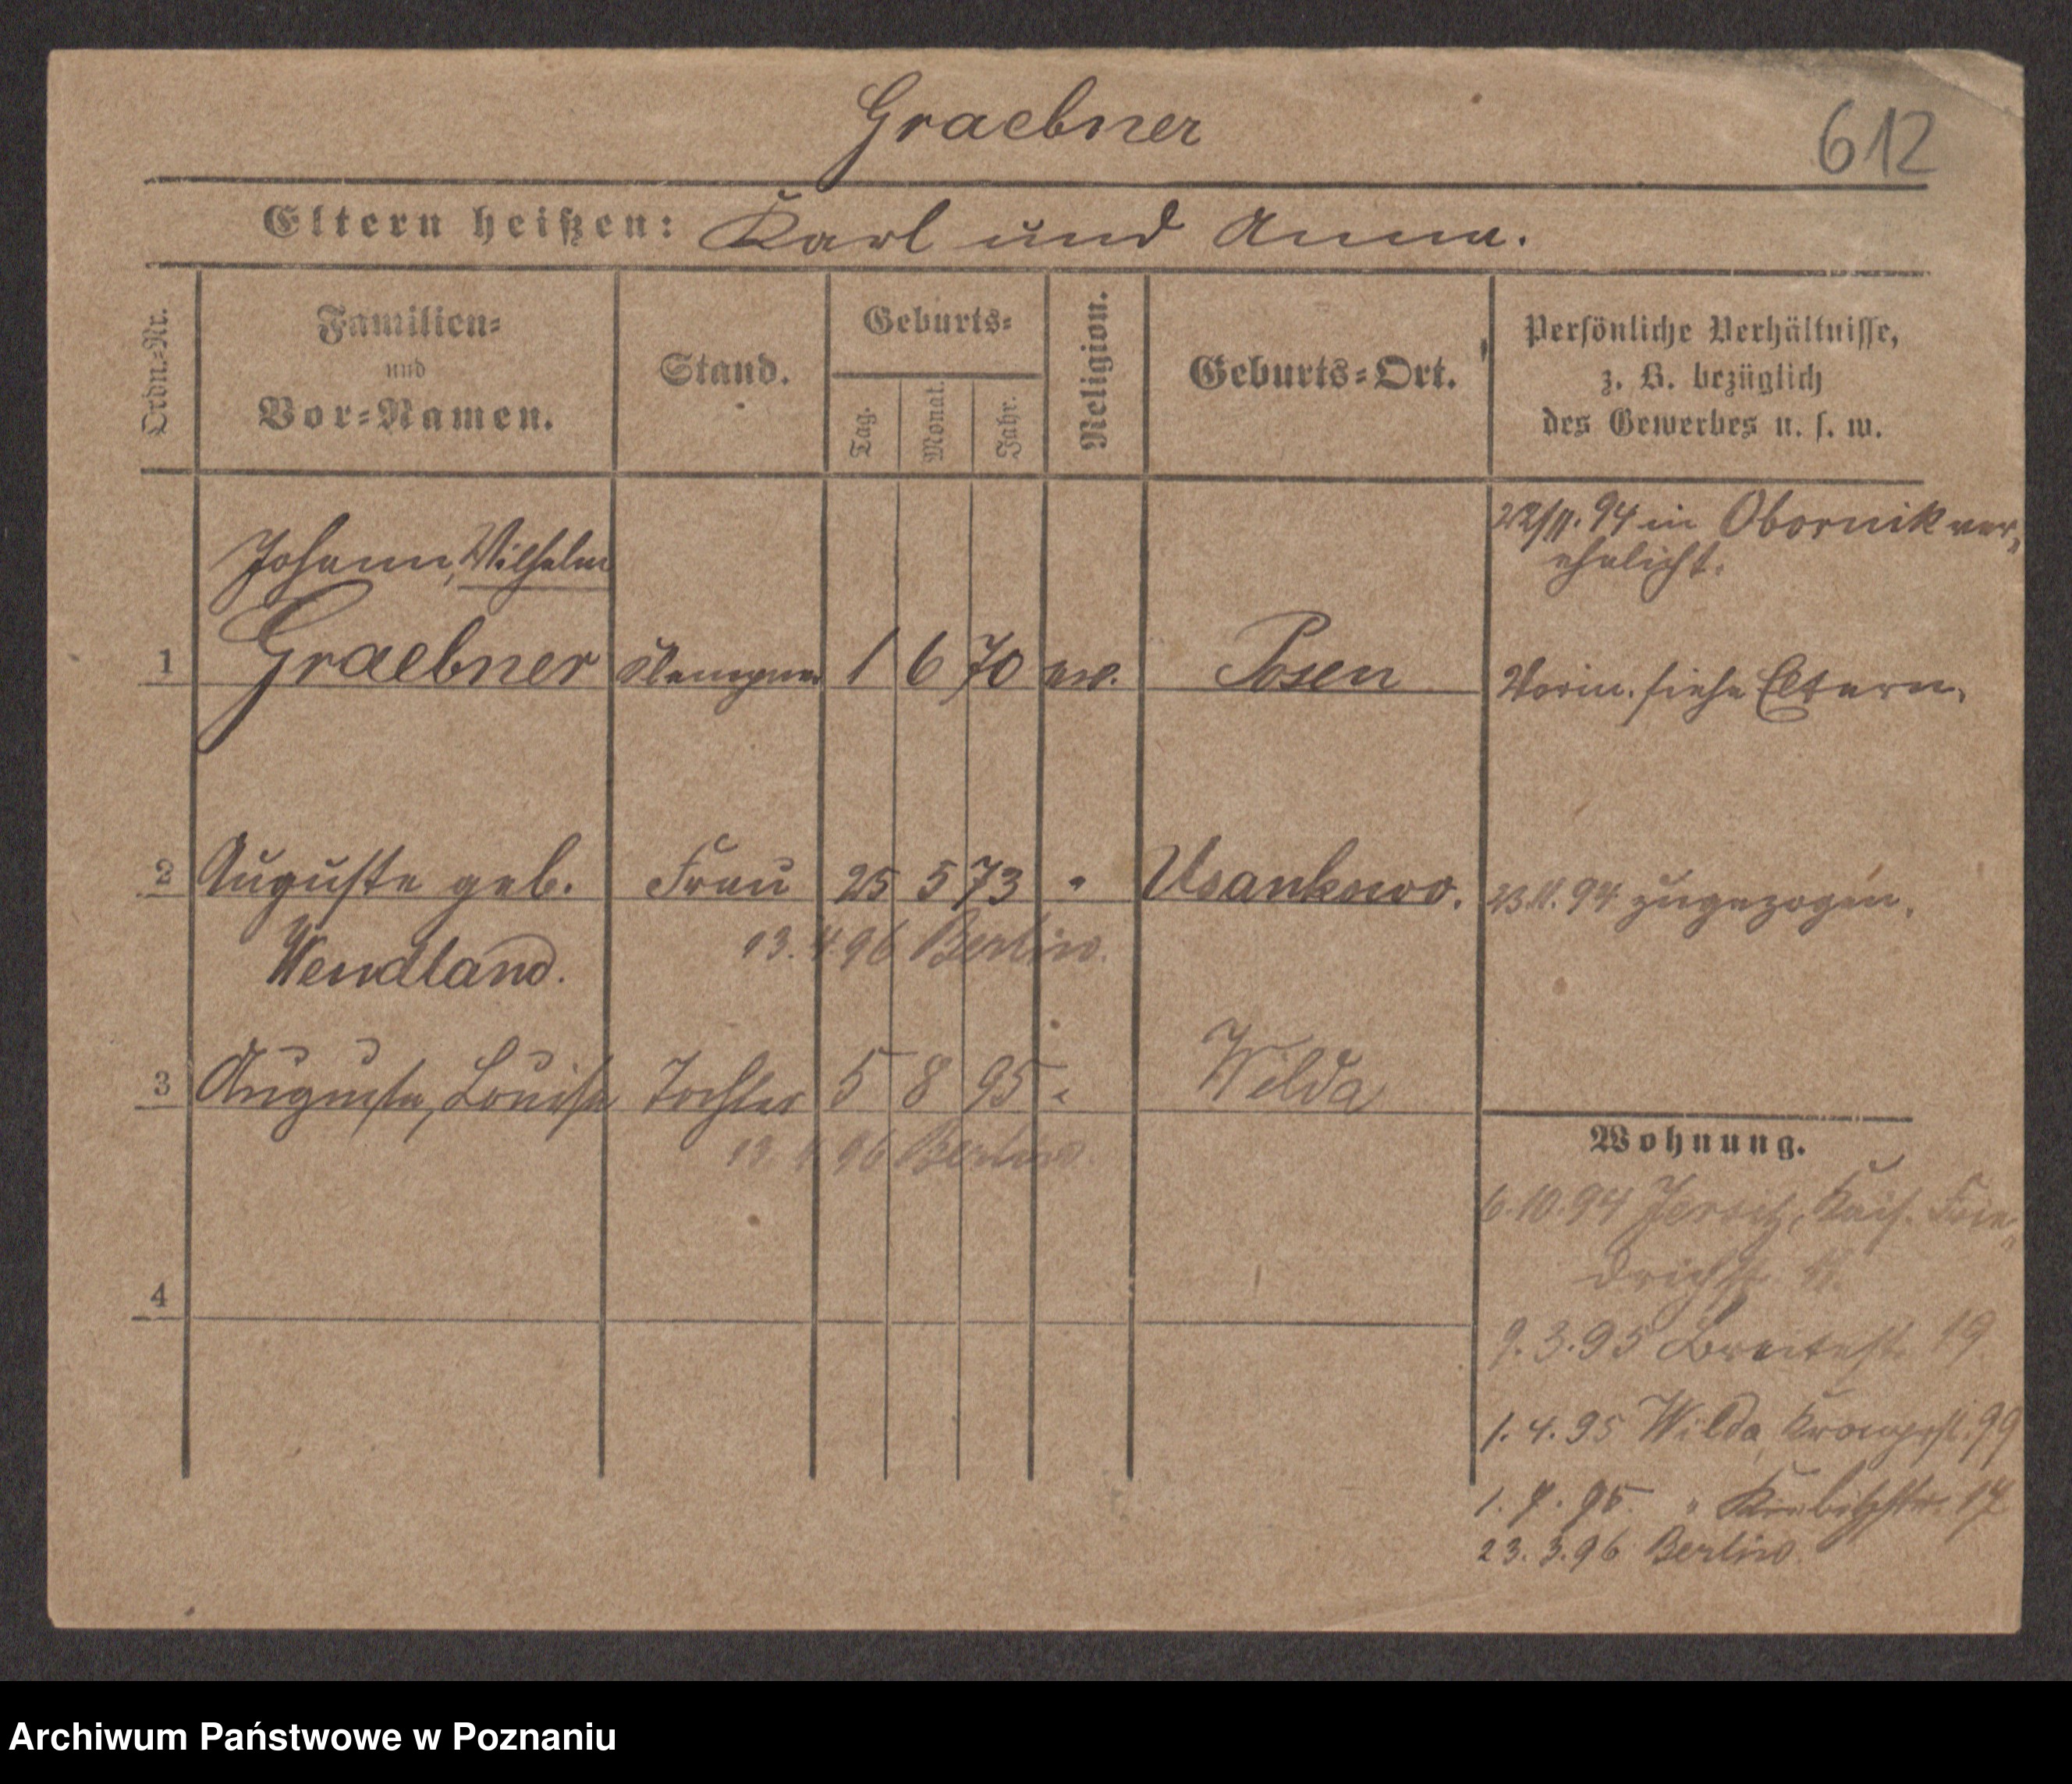 Graebner
612
Eltern heißen: Karl und Anna.
Ordn.-Nr.
Familien-
und
Vor-Namen.
Stand.
Geburts-
Tag.
Monat.
Jahr.
Religion.
Geburts-Ort.
Persönliche Verhältnisse,
z. B. bezüglich
des Gewerbes u. s. w.
22/11. 94 in Obornik ver-
ehelicht.
Johann, Wilhelm
1 Graebner Klempner 1 6 70 ev. Posen Vorm. siehe Eltern.
2 Auguste geb. Frau 25 5 73 " Usankowo. 23.11.94 zugezogen.
Wendland. 13.4.96 Berlin.
3 Auguste, Louise Tochter 5 8 95 " Wilda
13 4 96 Berlin.
Wohnung.
6.10.94 Jersitz, Kais. Frie-
drichstr.
4
9.3.95 Breitestr. 19
1.4.95 Wilda, Kronprzst. 99
1.7.95. "
23.3.96 Berlin.
Archiwum Państwowe w Poznaniu